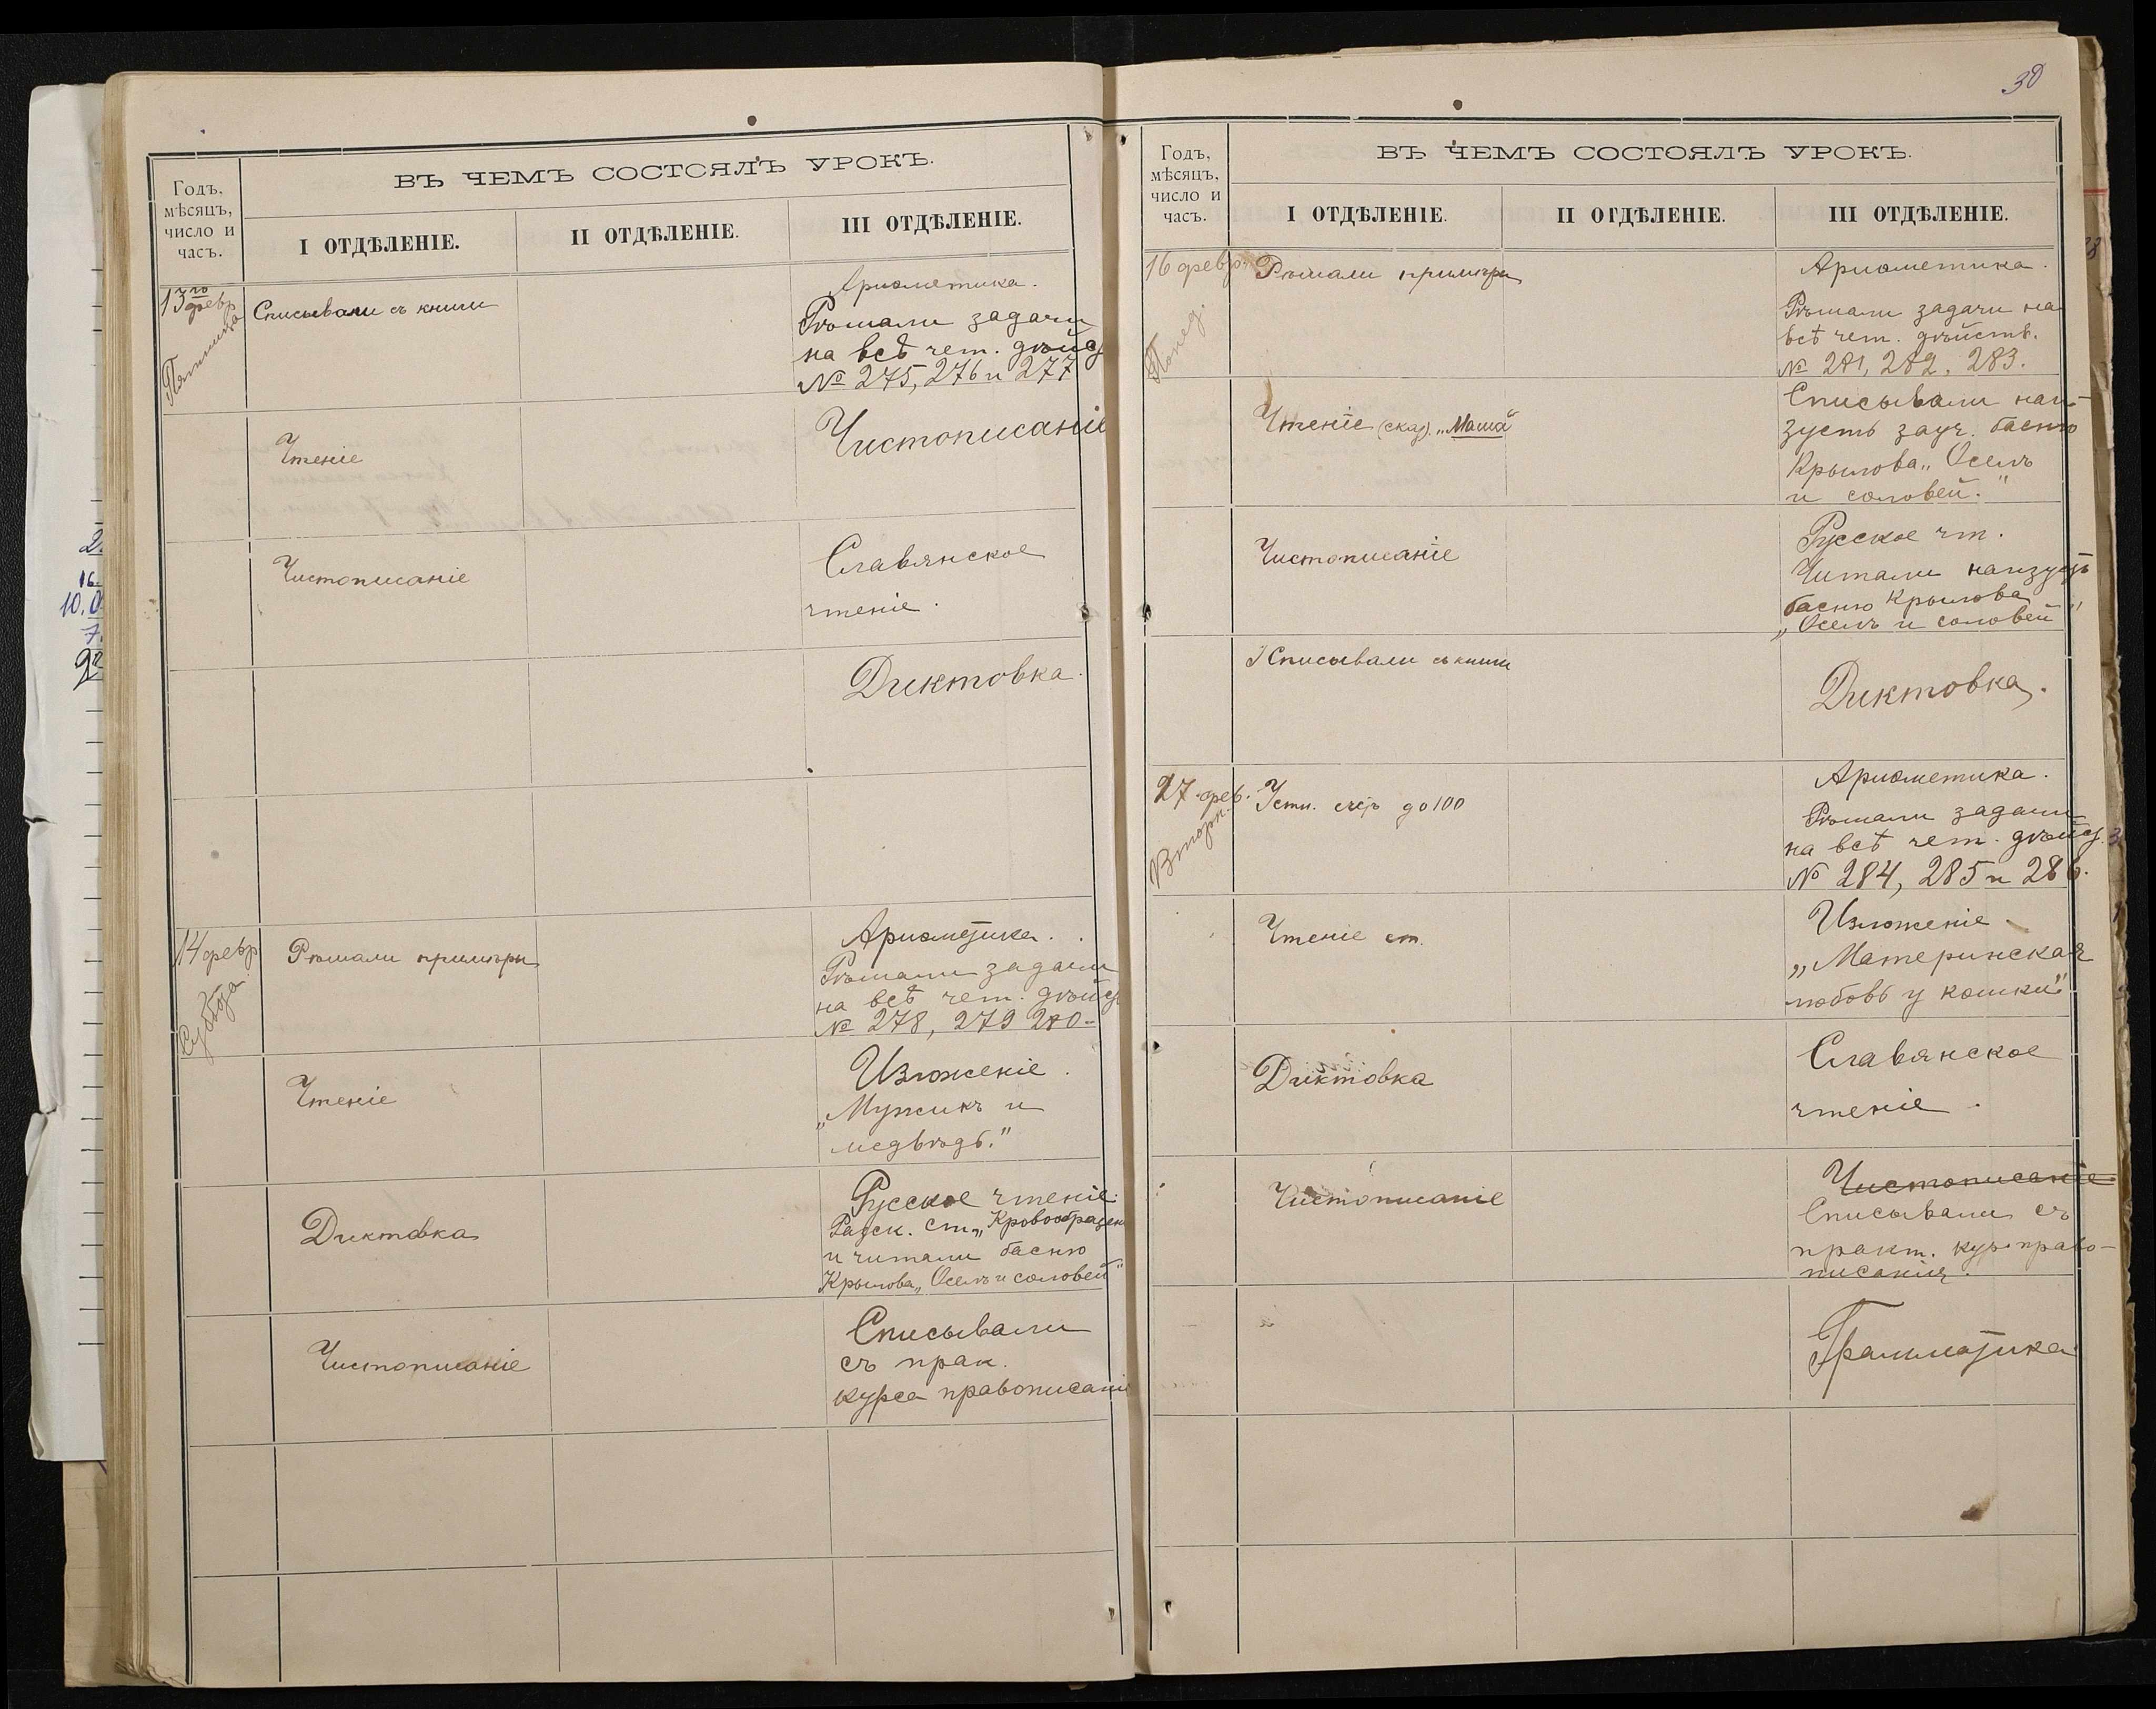 ВЪ ЧЕМЪ СОСТОЯЛЪ УРОКЪ.
Годъ,
мѣсяцъ,
число и
часъ.
I ОТДѢЛЕНІЕ.
II ОТДѢЛЕНІЕ.
III ОТДѢЛЕНІЕ.
13го февр
Пятница
Списывали съ книги
Ариѳметика.
Рѣшали задачи
на всѣ чет. дѣйст
№ 275, 276 и 277
Чтеніе
Чистописаніе
Чистописаніе
Славянское
чтеніе.
Диктовка.
14 февр
Суббота.
Рѣшали примѣры
Ариѳметика.
Рѣшали задачи
на всѣ чет. дѣйст
№ 278, 279 280
Чтеніе
Изложеніе.
„Мужикъ и
медвѣдь."
Диктовка
Русское чтеніе.
Разск. ст. „Кровообращен
и читали басню
Крылова „Оселъ и соловей"
Чистописаніе
Списывали
съ прак.
курса правописані
30
ВЪ ЧЕМЪ СОСТОЯЛЪ УРОКЪ.
Годъ,
мѣсяцъ,
число и
часъ.
I ОТДѢЛЕНІЕ.
II ОТДѢЛЕНІЕ.
III ОТДѢЛЕНІЕ.
16 февр.
Понед.
Рѣшали примѣры
Ариѳметика.
Рѣшали задачи на
всѣ чет. дѣйств.
№ 281, 282, 283.
Чтеніе (сказ). „Маша"
Списывали наи-
зусть зауч. басню
Крылова „Оселъ
и соловей."
Чистописаніе
Русское чт.
Читали наизусть
басню Крылова
„Оселъ и соловей"
Списывали съ книги
Диктовка.
27 фев.
Вторн.
Устн. счетъ до 100
Ариѳметика.
Рѣшали задачи
на всѣ чет. дѣйст.
№ 284, 285 и 286.
Чтеніе ст.
Изложеніе
„Материнская
любовь у кошки"
Диктовка
Славянское
чтеніе.
Чистописаніе
Чистописаніе
Списывали съ
практ. кур. право-
писанія.
Грамматика